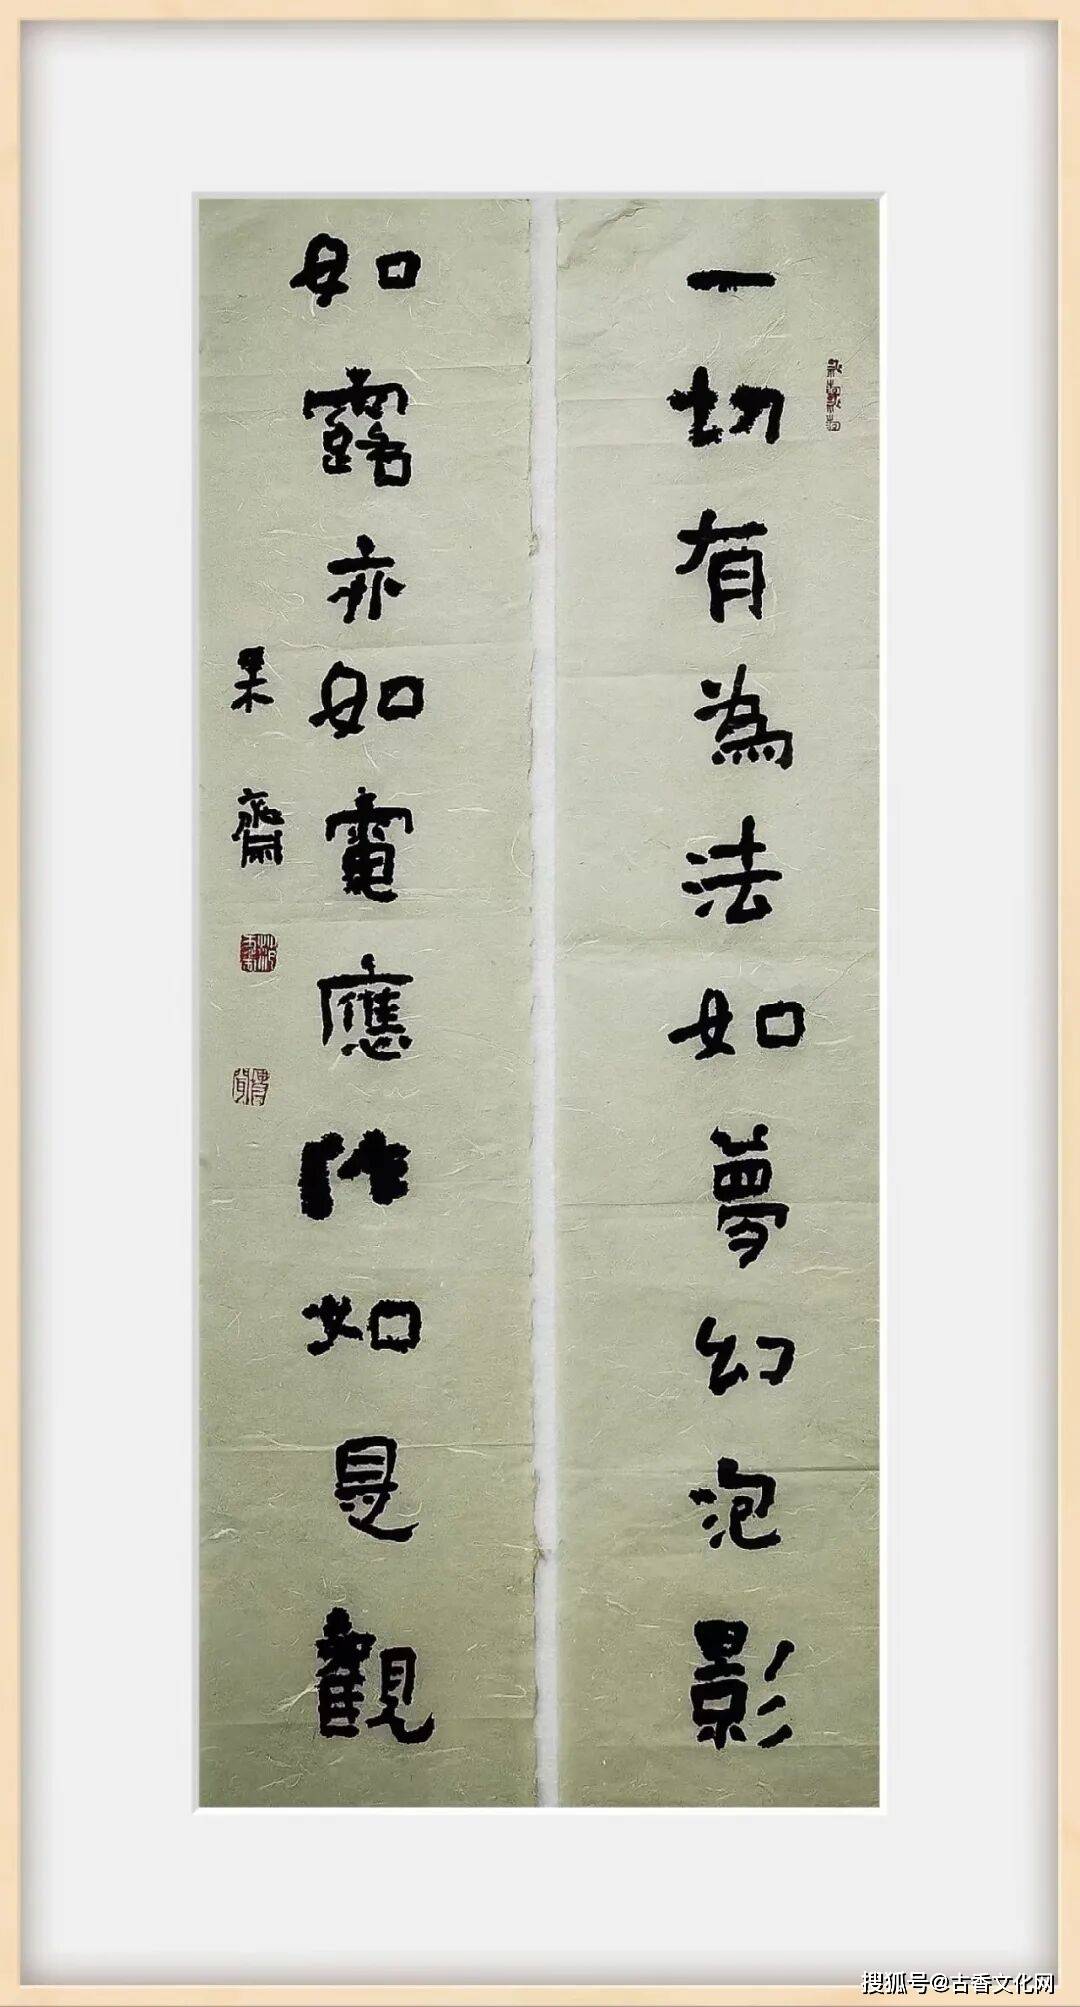 一切有為法如夢幻泡影
如露亦如電應作如是觀
果齋
搜狐号@古香文化网